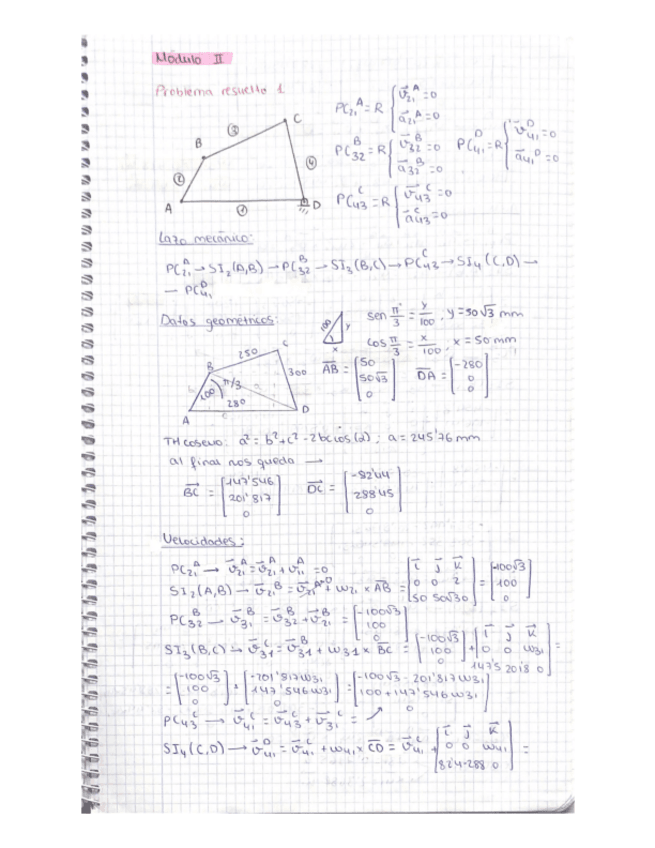 Módulo II
Problema resuelto 1
A B C D ① ② ③ ④
PC₂₁^A = R { v⃗₂₁^A = 0
a⃗₂₁^A = 0
PC₃₂^B = R { v⃗₃₂^B = 0
a⃗₃₂^B = 0
PC₄₁^D = R { v⃗₄₁^D = 0
a⃗₄₁^D = 0
PC₄₃^C = R { v⃗₄₃^C = 0
a⃗₄₃^C = 0
Lazo mecánico:
PC₂₁^A → SI₂(A,B) → PC₃₂^B → SI₃(B,C) → PC₄₃^C → SI₄(C,D) →
— PC₄₁^D
Datos geométricos:
A B C D 100 250 300 280 π/3 a
100 y x
sen π/3 = y/100 , y = 50√3 mm
cos π/3 = x/100 , x = 50 mm
AB = [50 50√3 0] DA = [-280 0 0]
TH coseno: a² = b² + c² - 2bc cos(2) ; a = 245'76 mm
al final nos queda →
BC = [147'546 201'817 0] DC = [-82'44 288'45 0]
Velocidades:
PC₂₁^A → v⃗₂₁^A = v⃗₂₁^A + v⃗₁₁^A = 0
SI₂(A,B) → v⃗₂₁^B = v⃗₂₁^A + ω₂₁ × AB = [i j k 0 0 2 50 50√3 0] = [-100√3 100 0]
PC₃₂^B → v⃗₃₁^B = v⃗₃₂^B + v⃗₂₁^B = [-100√3 100 0]
SI₃(B,C) → v⃗₃₁^C = v⃗₃₁^B + ω₃₁ × BC = [-100√3 100 0] + [i j k 0 0 ω₃₁ 147'5 201'8 0] =
= [-100√3 100 0] + [-201'817ω₃₁ 147'546ω₃₁ 0] = [-100√3 - 201'817ω₃₁ 100 + 147'546ω₃₁ 0]
PC₄₃^C → v⃗₄₁^C = v⃗₄₃^C + v⃗₃₁^C = ↗
SI₄(C,D) → v⃗₄₁^D = v⃗₄₁^C + ω₄₁ × CD = v⃗₄₁^C + [i j k 0 0 ω₄₁ 82'4 -288 0] =